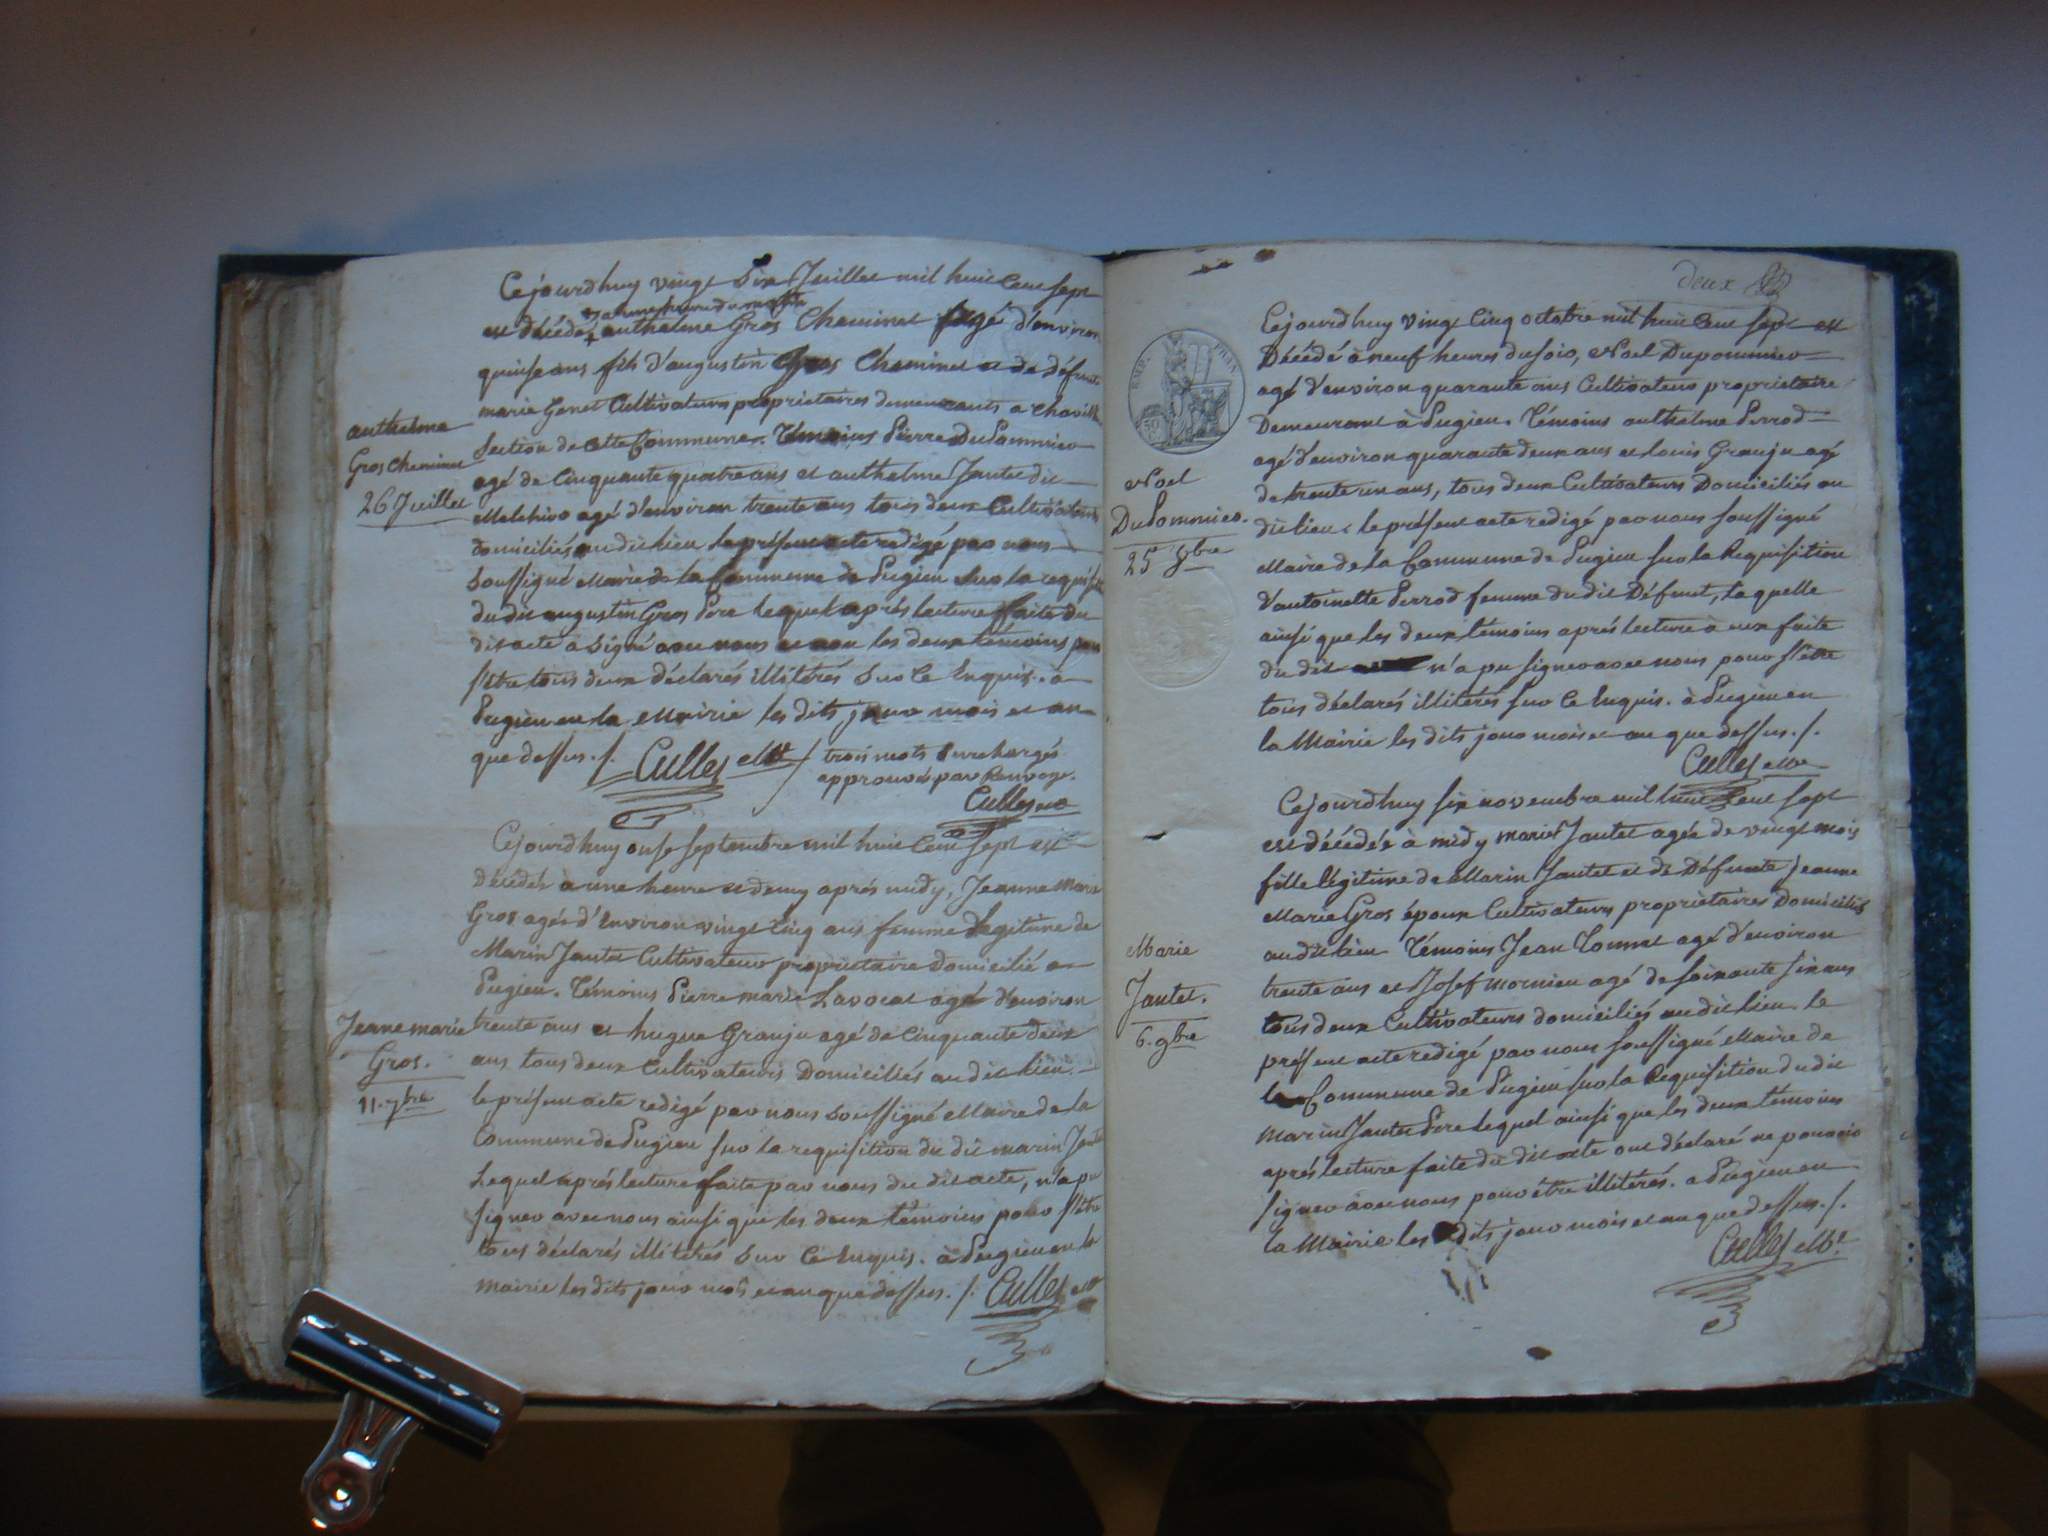 Cejourdhuy vingt Six Juillet mil huit Cent Sept
est décédé authelme Gros Cheminet agé d'environ
quinse ans fils d'augustin Gros Cheminet et de défunte
marie Genet Cultivateurs propriétaires demeurants a
authelme
Section de cette Commune. Témoins Pierre DuPommier
Gros Cheminet
agé de Cinquante quatre ans et authelme Jantet dit
26 Juillet
agé d'environ trente ans tous deux Cultivateurs
domiciliés au dit lieu le présent acte redigé par nous
Soussigné Maire de la Commune de Pugieu Sur la
du dit augustin Gros Pere lequel après lecture faite du
dit acte a signé avec nous et non les deux temoins pour
s'être tous deux déclarés illiterés Sur Ce Enquis. a
Pugieu en la Mairie les dits jour mois et an
que dessus ./. Cullet trois mots Surchargés
approuvés par Renvoye.
Cullet
Cejourdhuy onse septembre mil huit Cent Sept est
Décédée à une heure et demy aprés midy, Jeanne Marie
Gros agée d'Environ vingt Cinq ans femme légitime de
Marin Jantet Cultivateur propriétaire Domicilié a
Pugieu. Témoins Pierre marie Lavocat agé d'environ
Jeane marie
trente ans et hugue Granju agé de Cinquante deux
Gros.
ans tous deux Cultivateurs Domiciliés au dit lieu.
11. 7bre
le présent acte redigé par nous Soussigné Maire de la
Commune de Pugieu sur la requisition du dit marin Jantet
Lequel aprés lecture faite par nous du dit acte, n'a pu
signer avec nous ainsi que les deux témoins pour s'être
tous déclarés illiterés Sur Ce Enquis. à Pugieu en la
mairie les dits jour mois et an que dessus. /. Cullet
deux
Cejourdhuy vingt Cinq octobre mil huit Cent Sept est
Décédé à neuf heures du soir, Noel Dupommier
agé d'environ quarante ans Cultivateur proprietaire
Demeurant à Pugieu. Témoins authelme Perrod
agé d'environ quarante deux ans et louis Granju agé
Noel
de trente un ans, tous deux Cultivateurs Domiciliés au
DuPommier.
dit lieu. le présent acte redigé par nous soussigné
25 8bre
Maire de la Commune de Pugieu sur la Requisition
d'antoinette Perrod femme du dit Défunt, laquelle
ainsi que les deux témoins aprés lecture à eux faite
du dit n'a pu signer avec nous pour s'être
tous déclarés illiterés sur Ce Enquis. à Pugieu en
la Mairie les dits jour mois et an que dessus. /.
Cullet
Cejourdhuy six novembre mil huit Cent Sept
est décédée à midy marie Jantet agée de vingt mois
fille légitime de Marin Jantet et de Défunte Jeanne
Marie Gros époux Cultivateurs proprietaires Domiciliés
Marie
au dit lieu Témoins Jean Tonnet agé d'environ
Jantet.
trente ans et Josef mornieu agé de soixante six ans
6. 9bre
tous deux Cultivateurs domiciliés au dit lieu. le
présent acte redigé par nous soussigné Maire de
la Commune de Pugieu sur la Requisition du dit
Marin Jantet Pere lequel ainsi que les deux témoins
aprés lecture faite du dit acte ont déclaré ne pouvoir
signer avec nous pour être illiterés. a Pugieu en
la Mairie les dits jour mois et an que dessus. /.
Cullet